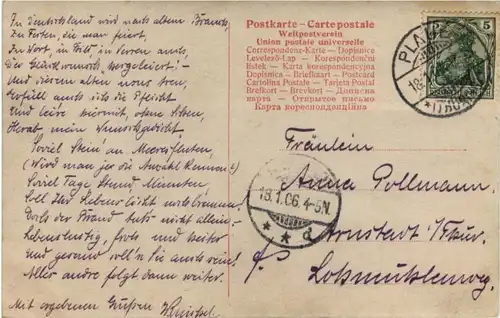 In Deutschland wird nach altem Brauch,
Zu Festen, die man feiert,
In Wort, in Bild, in Versen auch,
Der Glückwunsch
Und diesem alten treu,
Erfüll auch ich die Pflicht
Und leiere hiermit, ohne
Herab, mein Wunschgedicht
Soviel Stein' am Meeresstrand,
(Wird man je die Anzahl kennen?)
Soviel Tage, Stund, Minuten,
Soll Ihr Lebenslicht noch brennen
Doch der Brand tut's nicht allein,
Lebenslustig, froh und heiter
Und gesund soll'n Sie auch sein!
Alles andre folgt dann weiter.
Mit ergebenen Grüßen
Postkarte - Carte postale
Weltpostverein
Union postale universelle
Correspondenz-Karte - Dopisnice
Levelező-Lap - Korespondenční
lístek - Karta korespondencyjna
Dopisnica - Briefkaart - Postcard
Cartolina Postale - Tarjeta Postal
Brefkort - Brevkort - Дописна
карта - Открытое письмо
Карта кореспонденційна
5
PLAUE
18.1
*(THÜR
18.1.06. 4-5N.
* * d
Fräulein
Anna Pollmann.
Arnstadt i/Thür.
Lohmühlenweg.